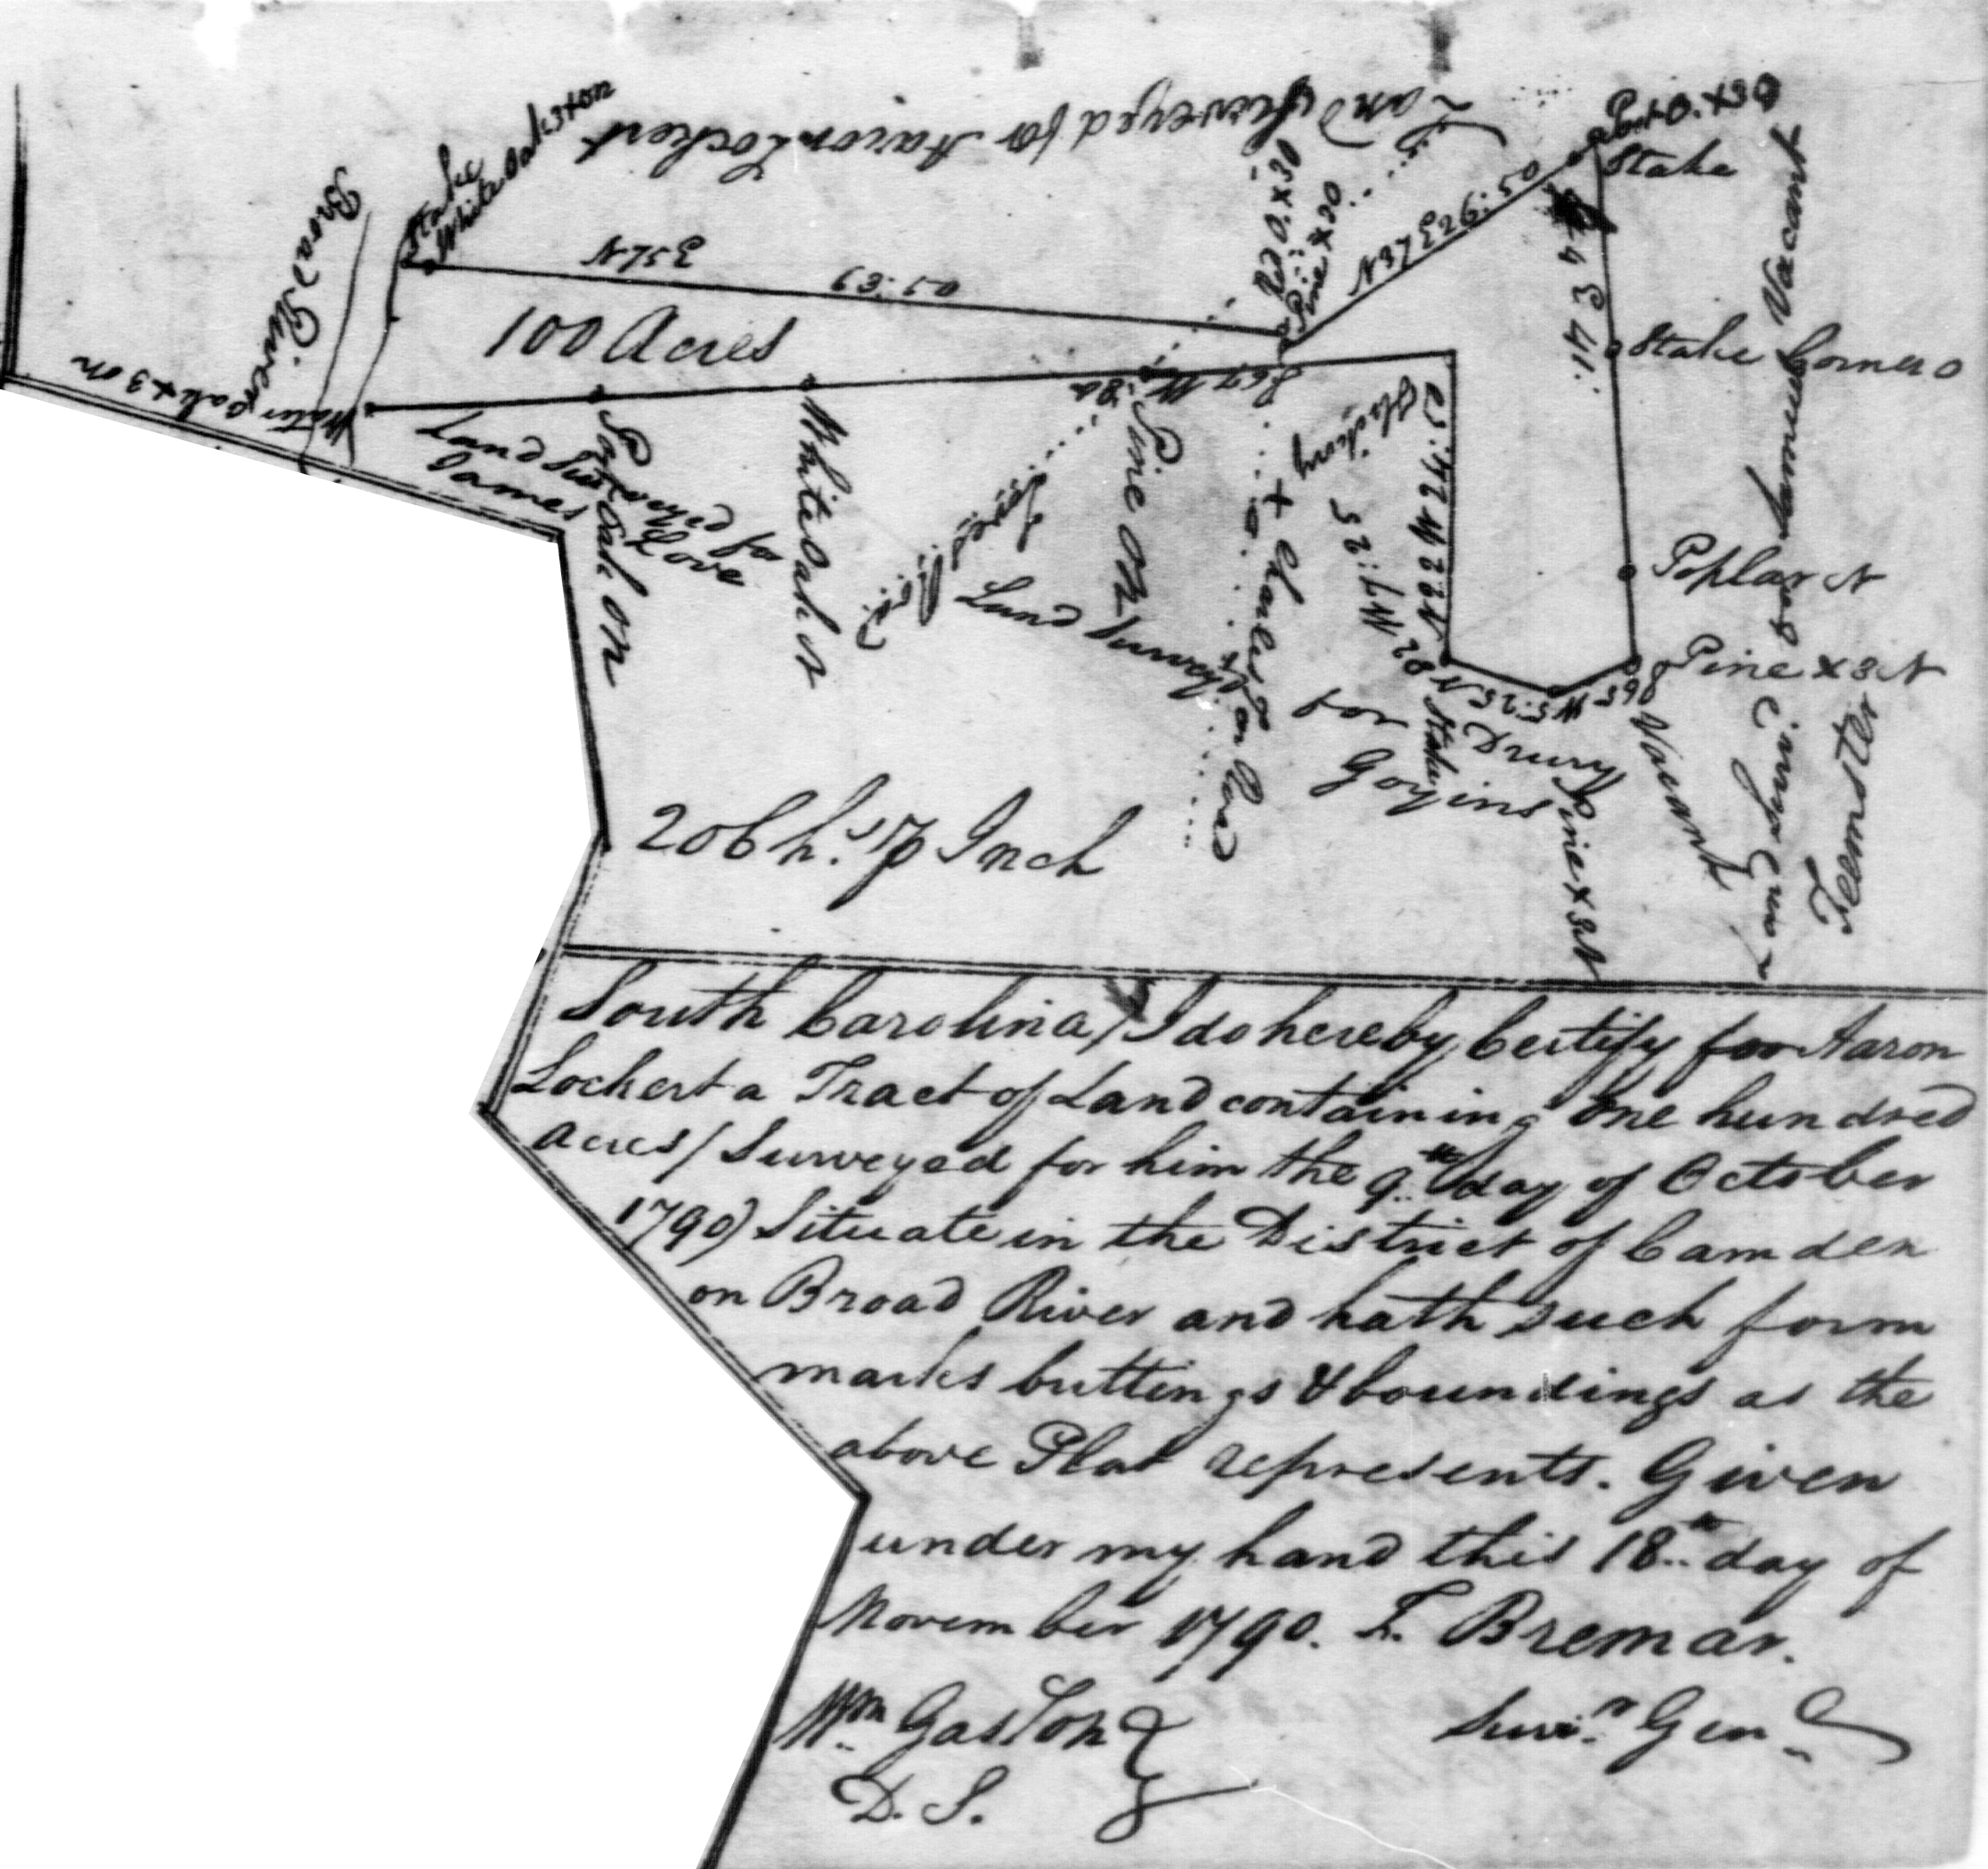 Land Surveyed for Aaron Lockert
Stake
White Oak 3 x on
Broad River
Water Oak x 3 on
N 75 E
63:50
100 Acres
Pine x 30
Stake
S 4 E 41:
Stake Corner O
Poplar N
Pine x 3 N
Vacant
Land Surv.d for Samuel
Feemster
Vacant
S 67 W 80
Land Surveyed for
James Love
White Oak N
Pine on
Hickory
Land Survey.d
for Drury
Goyins
to Charleston Road
Stake
Pine x 3 N
20 Ch.s P Inch
South Carolina / I do hereby Certify for Aaron
Lockert a Tract of Land containing one hundred
Acres / Surveyed for him the 9.th day of October
1790) Situate in the District of Camden
on Broad River and hath such form
marks buttings & boundings as the
above Plat represents. Given
under my hand this 18.th day of
November 1790. F. Bremar.
Wm. Gaston
Surv.r Gen.l
D. S.